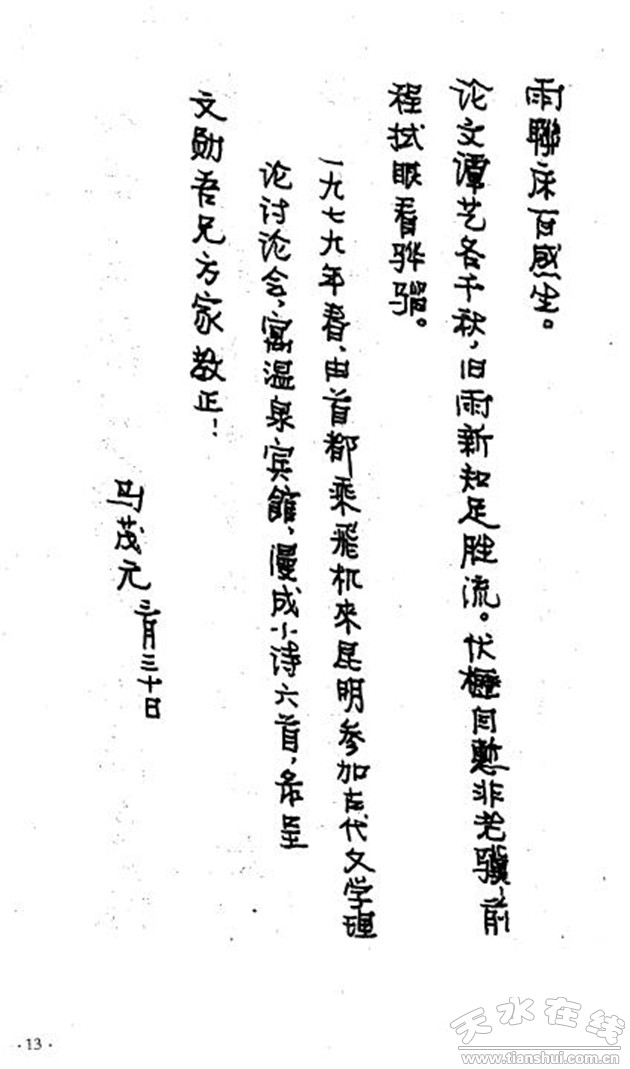 雨聯床百感生。
论文谭艺各千秋，旧雨新知足胜流。伏櫪自慙非老骥，前
程拭眼看骅骝。
一九七九年春，由首都乘飛机來昆明参加古代文学理
论讨论会，寓温泉宾館，漫成小诗六首，录呈
文勋吾兄方家教正！
马茂元 三月三十日
·13·
天水在线
www.tianshui.com.cn